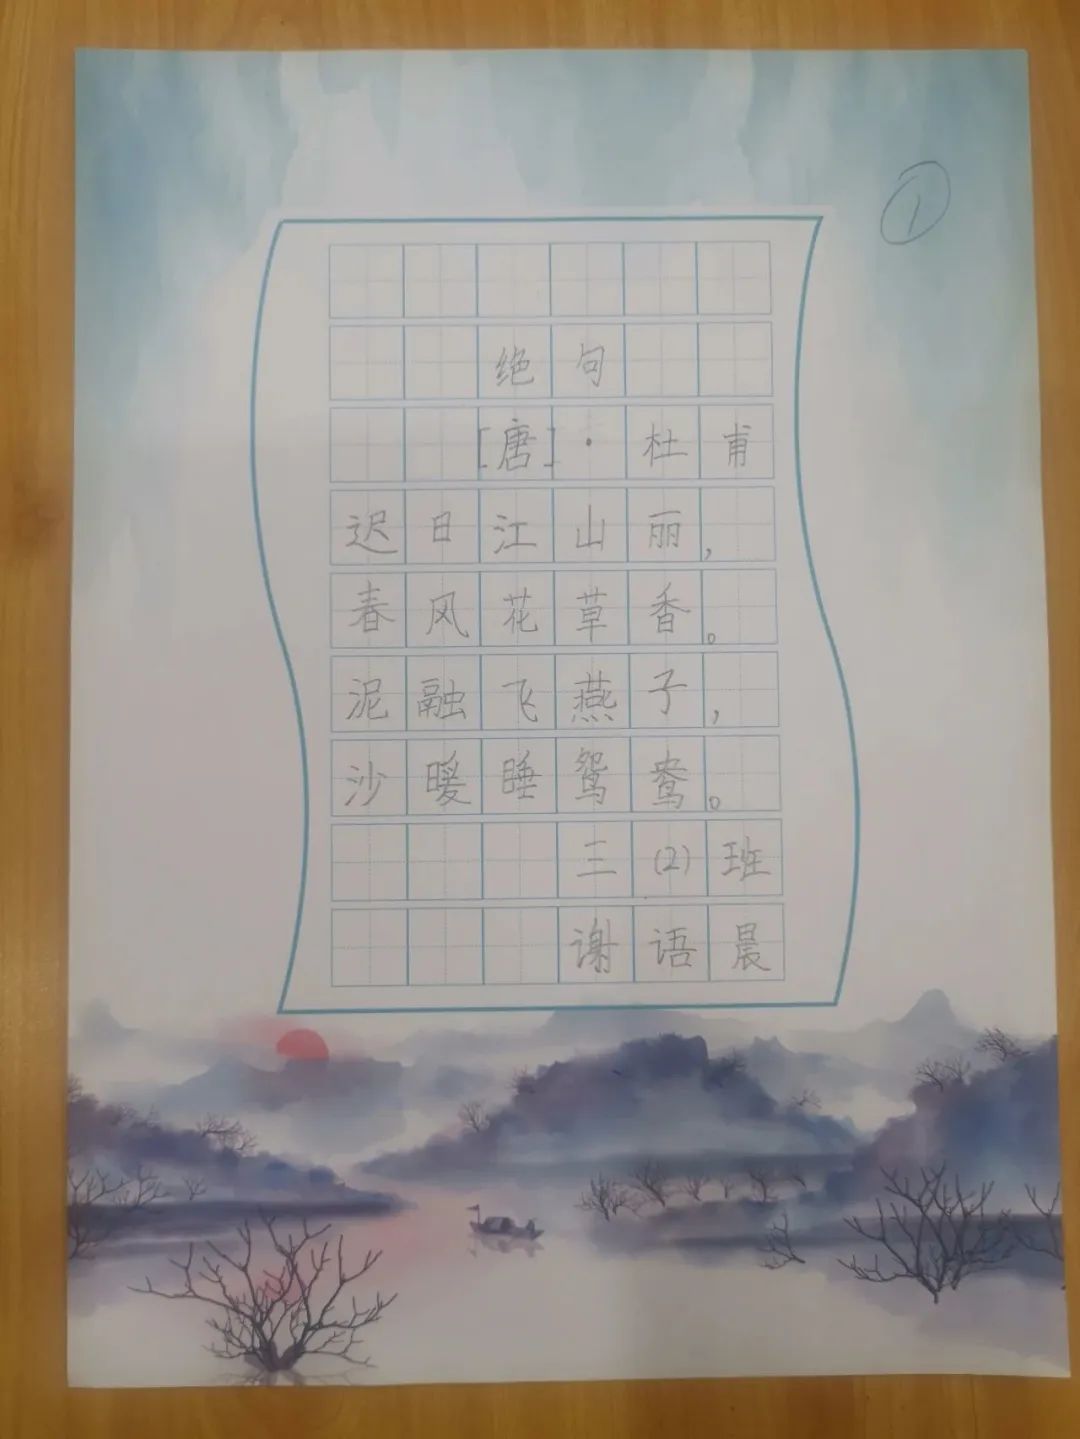 ①
绝句
[唐]·杜甫
迟日江山丽,
春风花草香。
泥融飞燕子,
沙暖睡鸳鸯。
三(2)班
谢语晨